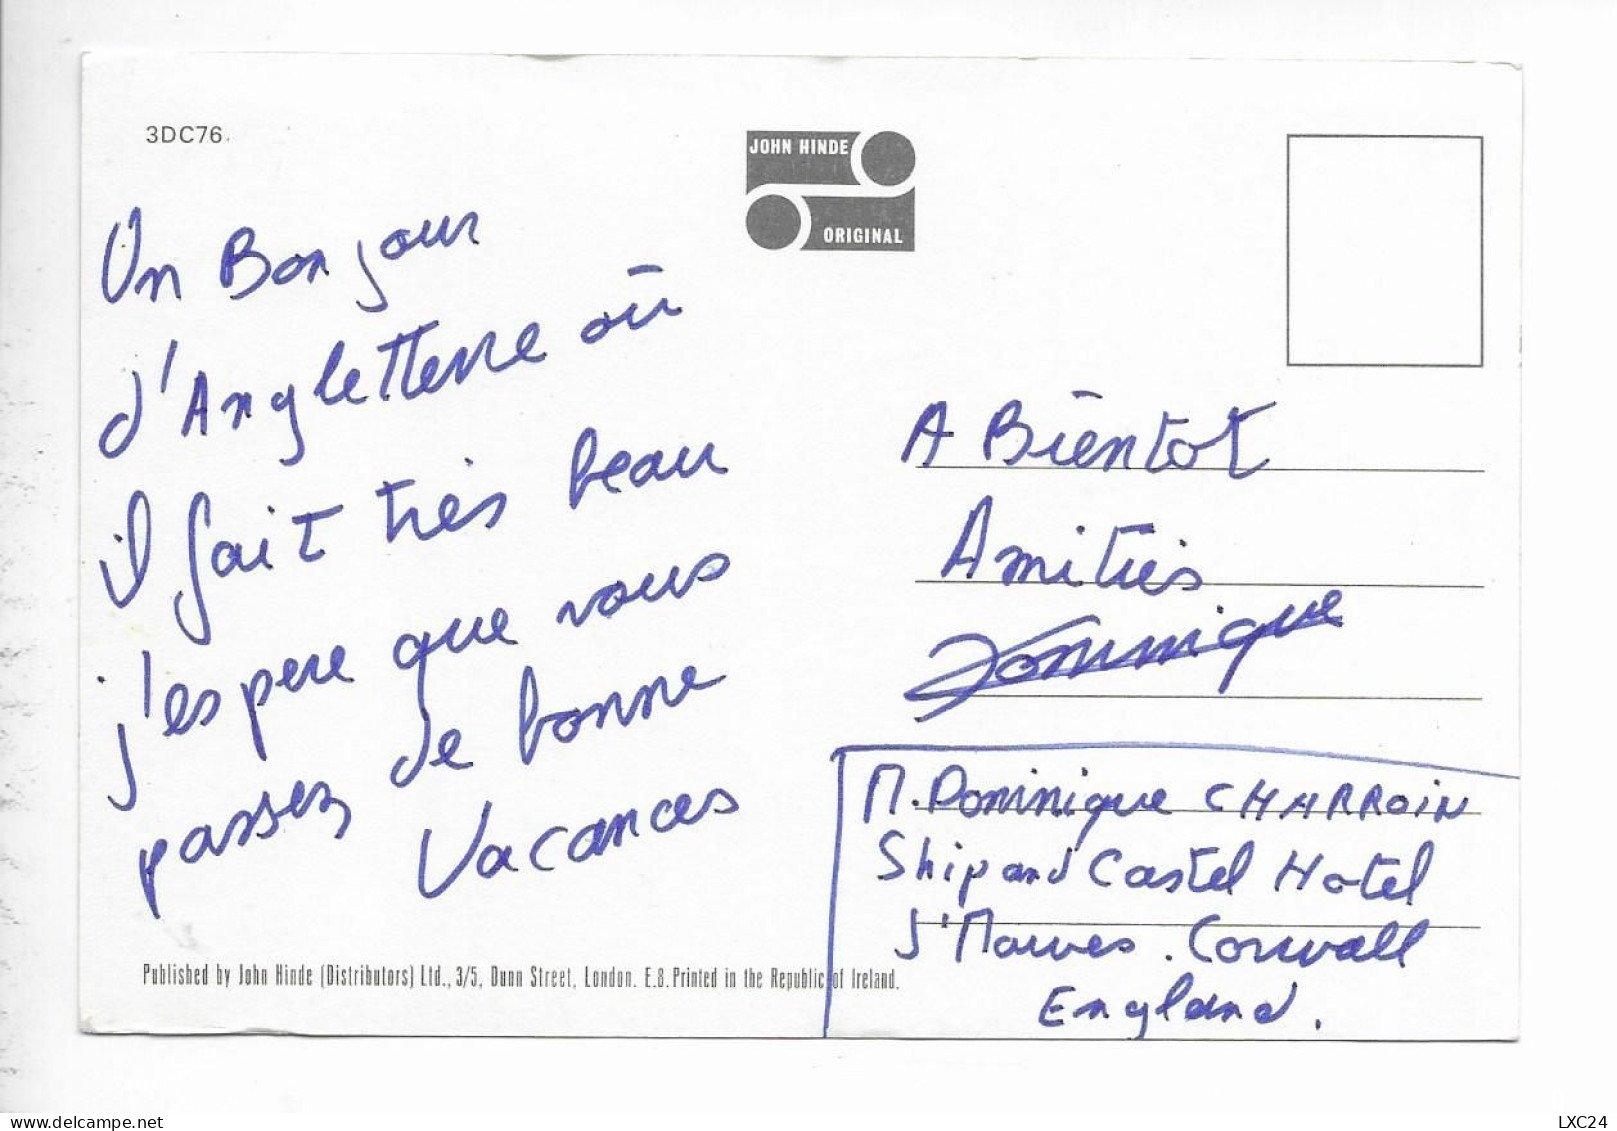 3DC76.
JOHN HINDE
ORIGINAL
Un Bonjour
d'Angletterre où
il fait très beau
j'espere que vous
passez de bonne
Vacances
A Bientot
Amitiés
Dominique
M. Dominique CHARROIN
Ship and Castel Hotel
S'Mawes. Cornwall
England.
Published by John Hinde (Distributors) Ltd., 3/5, Dunn Street, London. E.8. Printed in the Republic of Ireland.
delcampe.net
LXC24